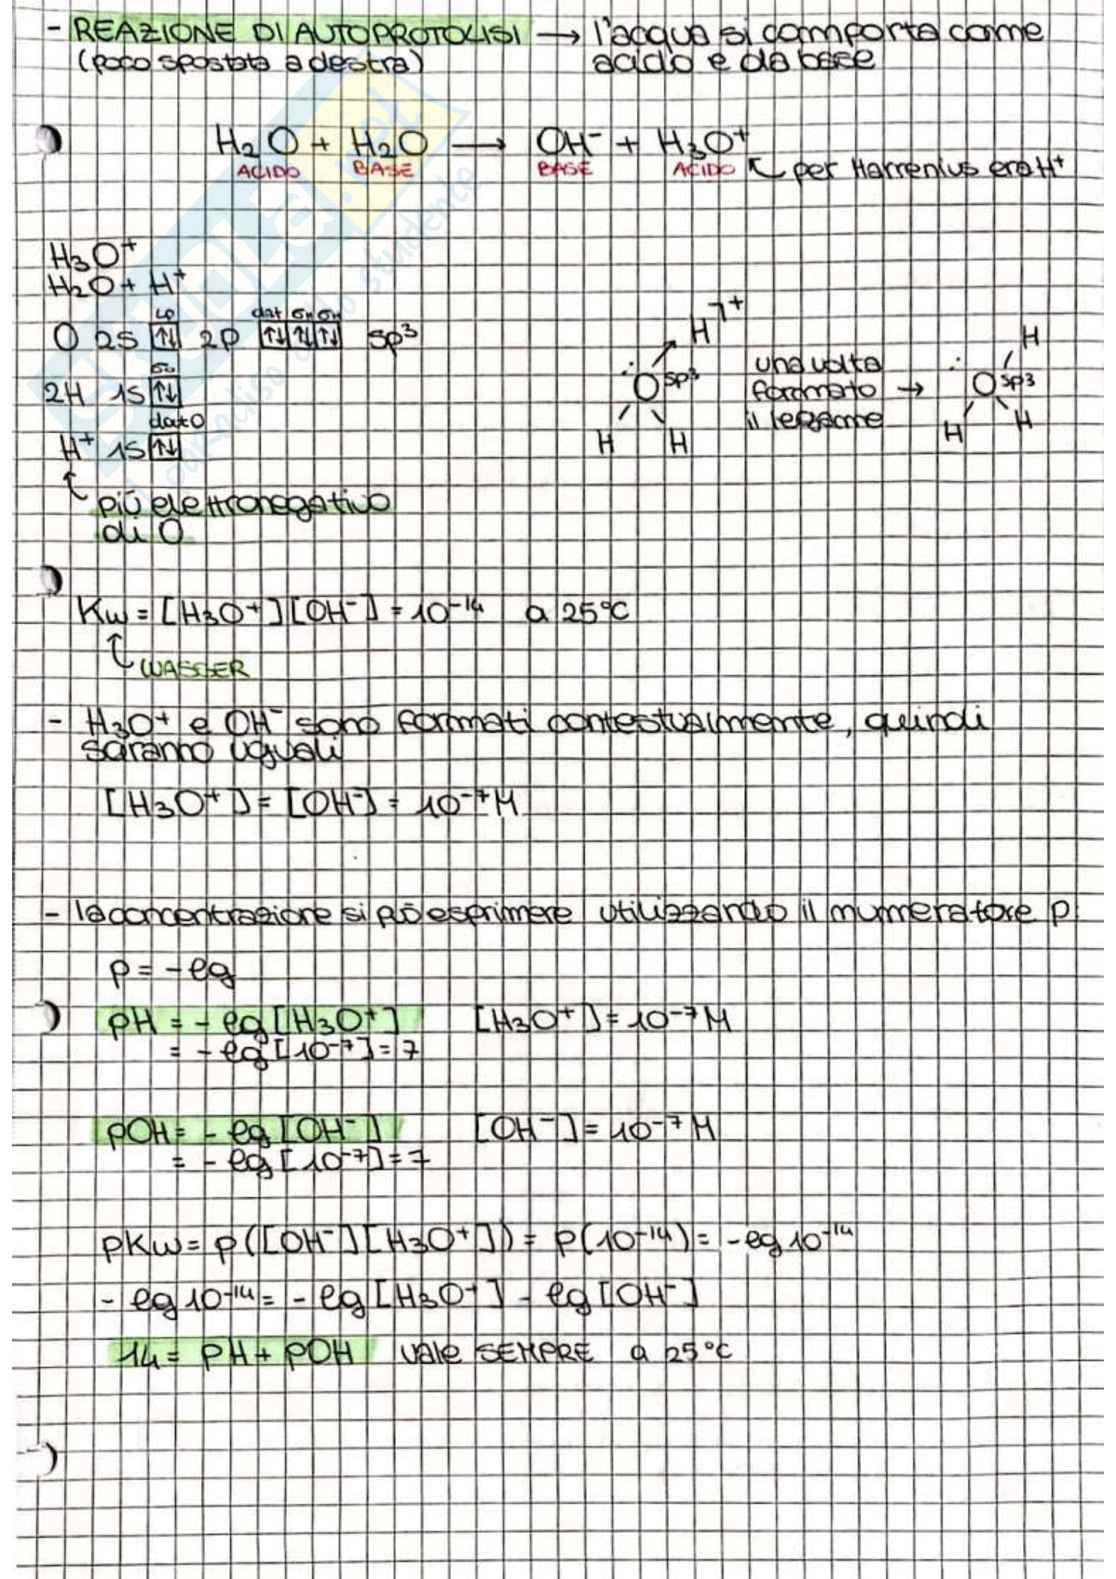 - REAZIONE DI AUTOPROTOLISI → l'acqua si comporta come
(poco spostata a destra) acido e da base
H₂O + H₂O → OH⁻ + H₃O⁺
ACIDO BASE BASE ACIDO ↖ per Harrenius era H⁺
H₃O⁺
H₂O + H⁺
lp dat σᵤ σᵤ
O 2s ↑↓ 2p ↑↓ ↑↓ ↑↓ sp³
σᵤ
2H 1s ↑↓
dat O
H⁺ 1s ↑↓
più elettronegativo
di O
H ⁺
O sp³
H H
una volta
formato →
il legame
H
O sp³
H H
Kw = [H₃O⁺][OH⁻] = 10⁻¹⁴ a 25°C
WASSER
- H₃O⁺ e OH⁻ sono formati contestualmente, quindi
saranno uguali
[H₃O⁺] = [OH⁻] = 10⁻⁷ M
- la concentrazione si può esprimere utilizzando il numeratore p:
p = -lg
pH = - lg [H₃O⁺] [H₃O⁺] = 10⁻⁷ M
= - lg [10⁻⁷] = 7
pOH = - lg [OH⁻] [OH⁻] = 10⁻⁷ M
= - lg [10⁻⁷] = 7
pKw = p([OH⁻][H₃O⁺]) = p(10⁻¹⁴) = -lg 10⁻¹⁴
- lg 10⁻¹⁴ = - lg [H₃O⁺] - lg [OH⁻]
14 = pH + pOH vale SEMPRE a 25°C